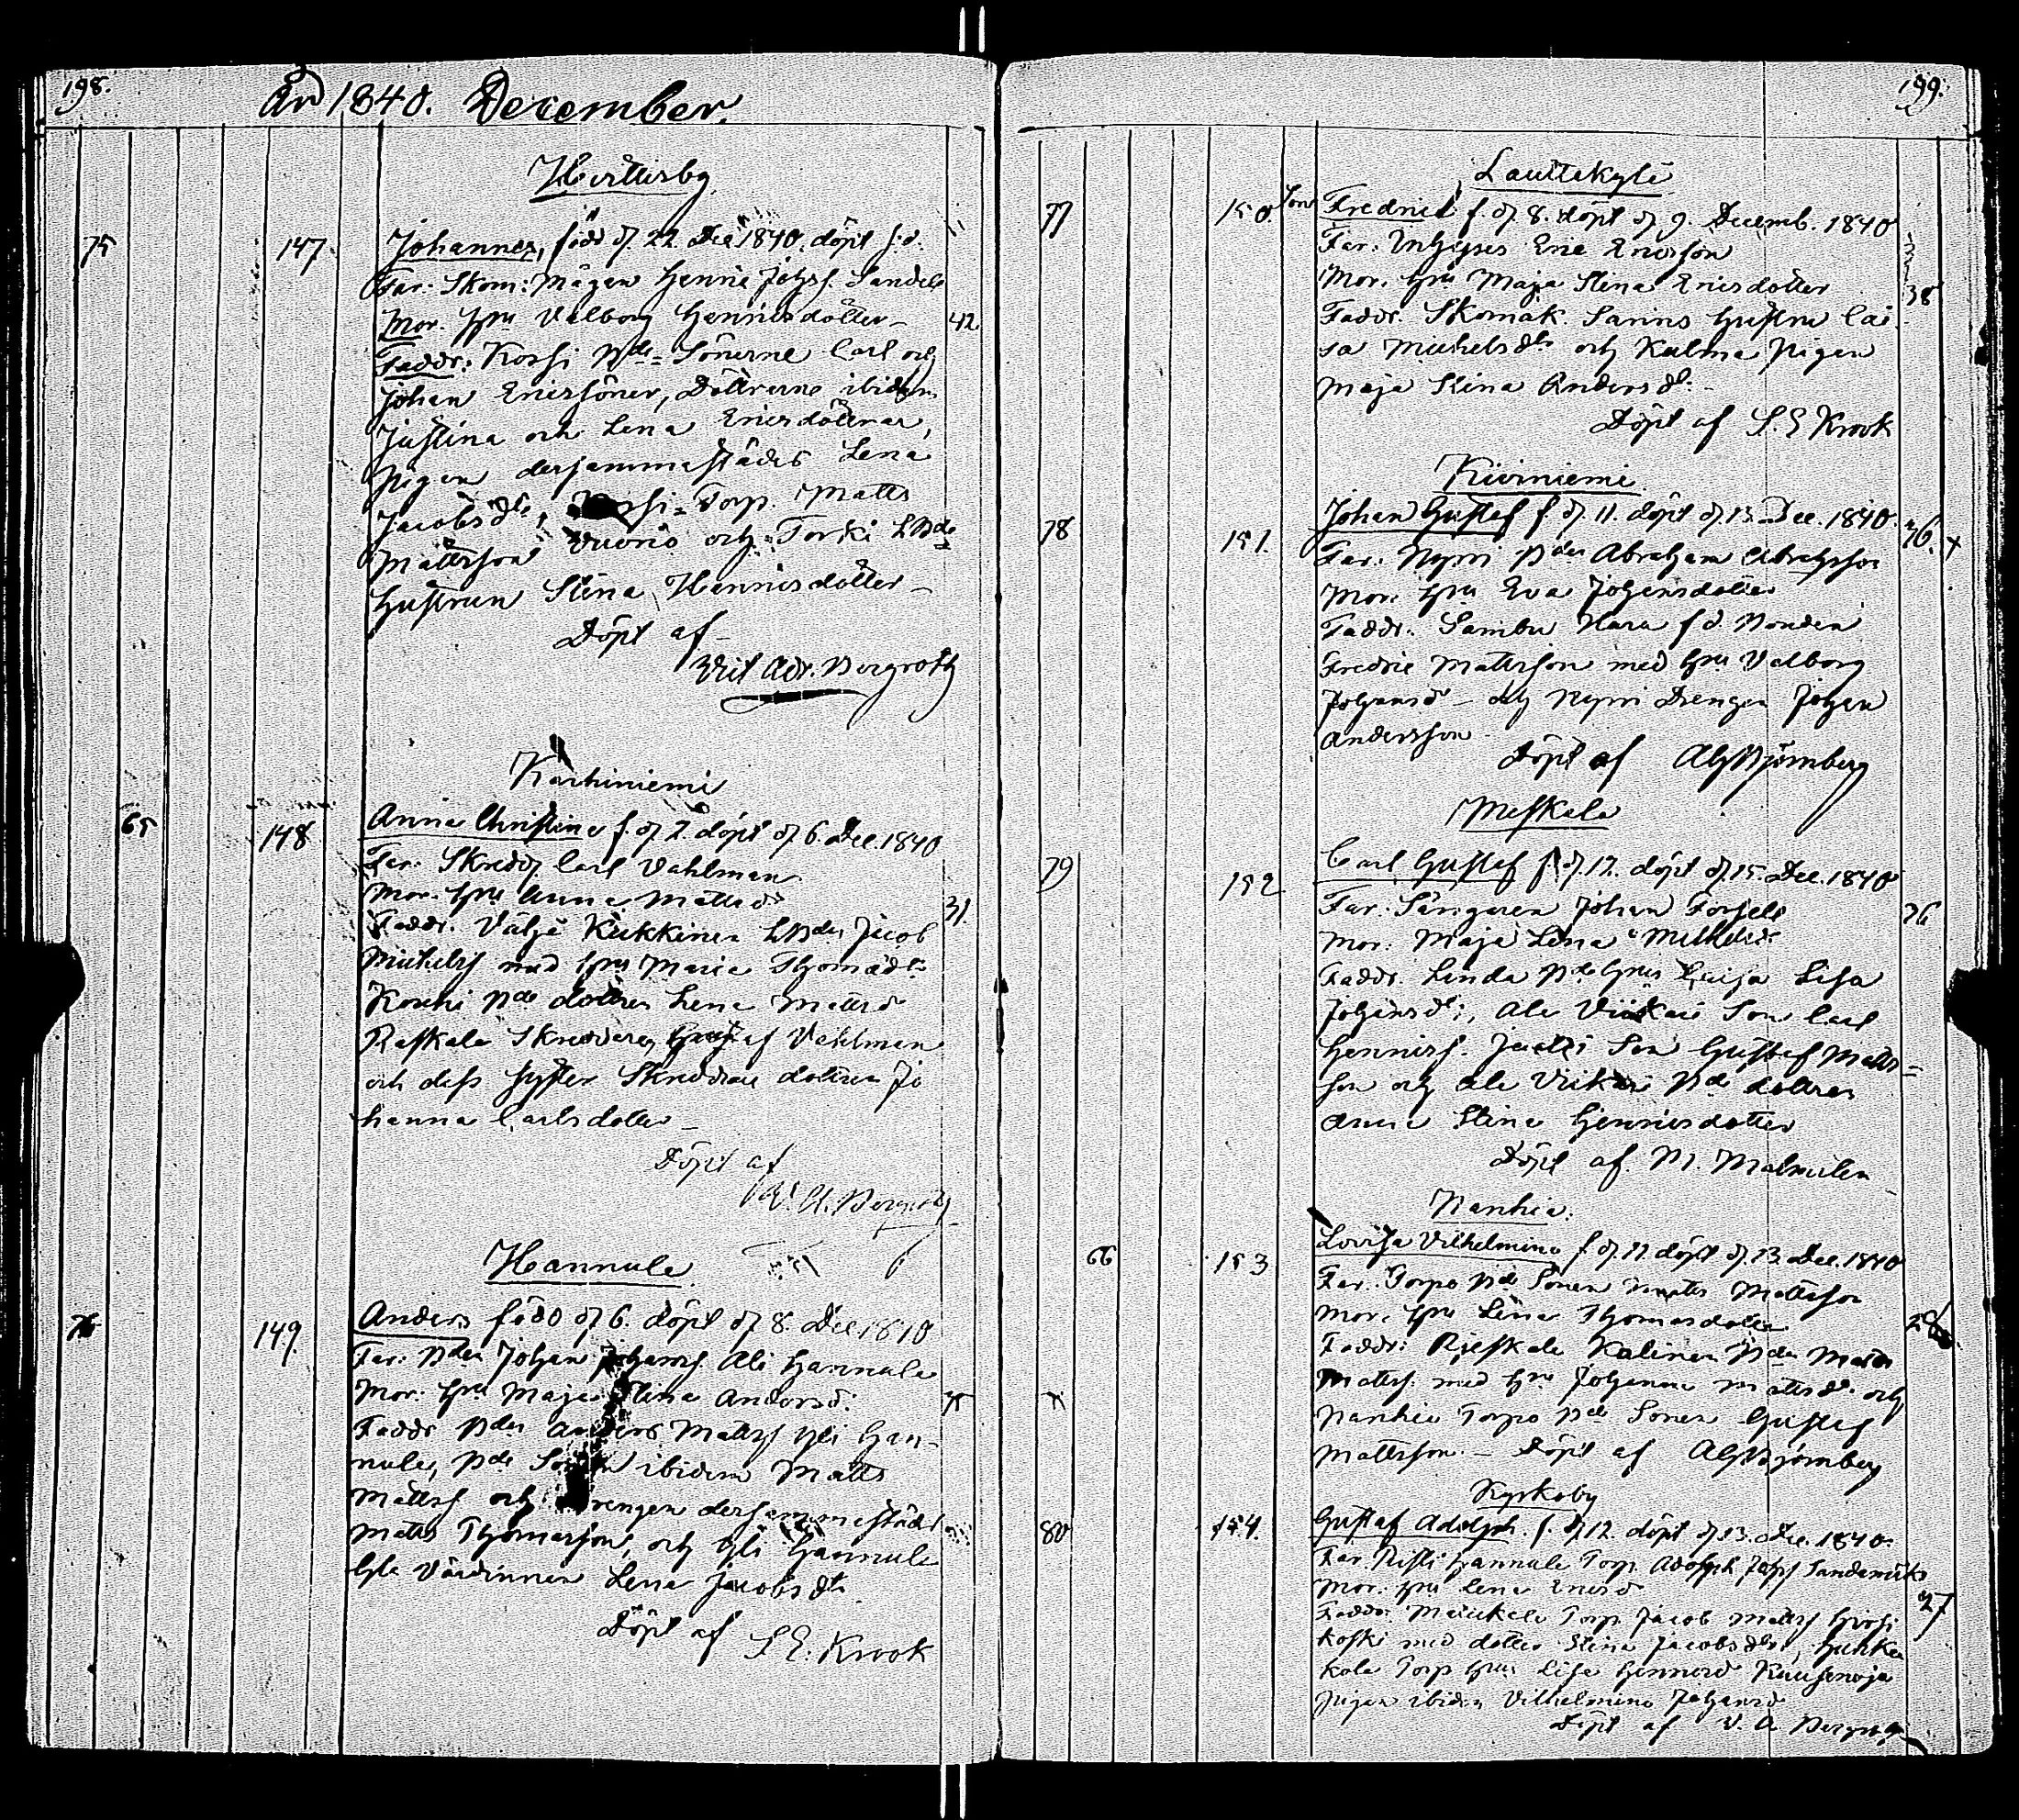 198.
År 1840. December.
Herttisby
75 147. Johannes, född d. 22. Dec 1840. döpt s.d.
Far: Skom: Mågen Henric Johss. Sandels
Mor. hru Valborg Henricsdotter 42.
Faddr: Kossi Bde Sönerne Carl och
Johan Ericssöner, Döttrarne ibidem
Justina och Lena Ericsdöttrar,
pigan dersammastädes Lena
Jacobsdtr, Torp. Matts
Mattsson Vuorio och Torki LBde
hustrun Stina Henricsdotter
Döpt af
Vict Adr. Bergroth
Karhiniemi
65 148 Anna Christina f. d. 2. döpt d. 6. Dec. 1840
Far: Skredd. Carl Vahlman
Mor. hru Anna Mattsd. 31.
Faddr. Väljä Kukkinen LBden Jacob
Michelss med hru Maria Thomædtr
Kouhi Bde dottren Lena Mattsd
Raskala Skreddaren Gustaf Vahlman
och dess syster Skreddare dottren Jo
hanna Carlsdotter
Döpt af
V. A. Bergroth
Hannula
76 149. Anders född d. 6. döpt d. 8. Dec. 1840
Far: Bden Johan Johanss. Ali Hannula
Mor: hru Maja Stina Andersd:
Faddr Bden Anders Mattss Yli Han-
nula, Bde Sonen ibidem Matts
Mattss och Drengen dersammastädes
Matts Thomasson, och Yli Hannula
Gla Värdinnan Lena Jacobsdtr
Döpt af S. E. Krook
199.
Lauttakylä
77 150. Son Fredric f. d. 8. döpt d. 9. Decemb. 1840
Far: Inhyses Eric Ericsson
Mor. hru Maja Stina Ericsdotter 38
Faddr. Skomak. Sarins hustru Cai-
sa Michelsdtr och Kulma pigan
Maja Stina Andersdr.
Döpt af S. E Krook
Kiviniemi
78 151. Johan Gustaf f. d. 11. döpt d. 13. Dec. 1840. 36. x
Far: Nyrri Bden Abraham Abrahsson
Mor. hru Eva Johansdotter
Faddr. Sambu Hara f d. Bonden
Fredric Mattsson med hru Valborg
Johansd. och Nyrri Drengen Johan
Andersson
Döpt af Alg Björnberg
Meskala
79 152 Carl Gustaf f. d. 12. döpt d. 15. Dec. 1840
Far: Sångaren Johan Forsels 36
Mor: Maja Lena Michelsd.
Faddr. Linda Bde hru Caisa Lisa
Johansdr., Ala Viikari Son Carl
Henricss. Jaatsi Son Gustaf Matts-
son och Ala Viikari Bde dottren
Anna Stina Henricsdotter
Döpt af. M. Malmelin
Nanhia.
66 153 Lovisa Vilhelmina f. d. 11 döpt d. 13. Dec. 1840
Far. Torpo Bde Sonen Matts Mattsson
Mor. hru Lena Thomasdotter 28
Faddr: Rieskala Kalinen Bden Matts
Mattss. med hru Johanna Mattsdr. och
Nanhia Torpo Bde Sonen Gustaf
Mattsson. Döpt af Alg Björnberg
Kyrkoby
80 154. Gustaf Adolph. f. d. 12. döpt d. 13. Dec. 1840.
Far. Risti Hannula Torp. Adolph Johss Sandsmäk
Mor. hru Lena Ericsd 27
Faddr. Maukela Torp Jacob Mattss
koski med dotter Stina Jacobsdtr,
kala Torp hru Lisa Henricsd
pigan ibidem Vilhelmina Johansd
Döpt af V. A Bergroth